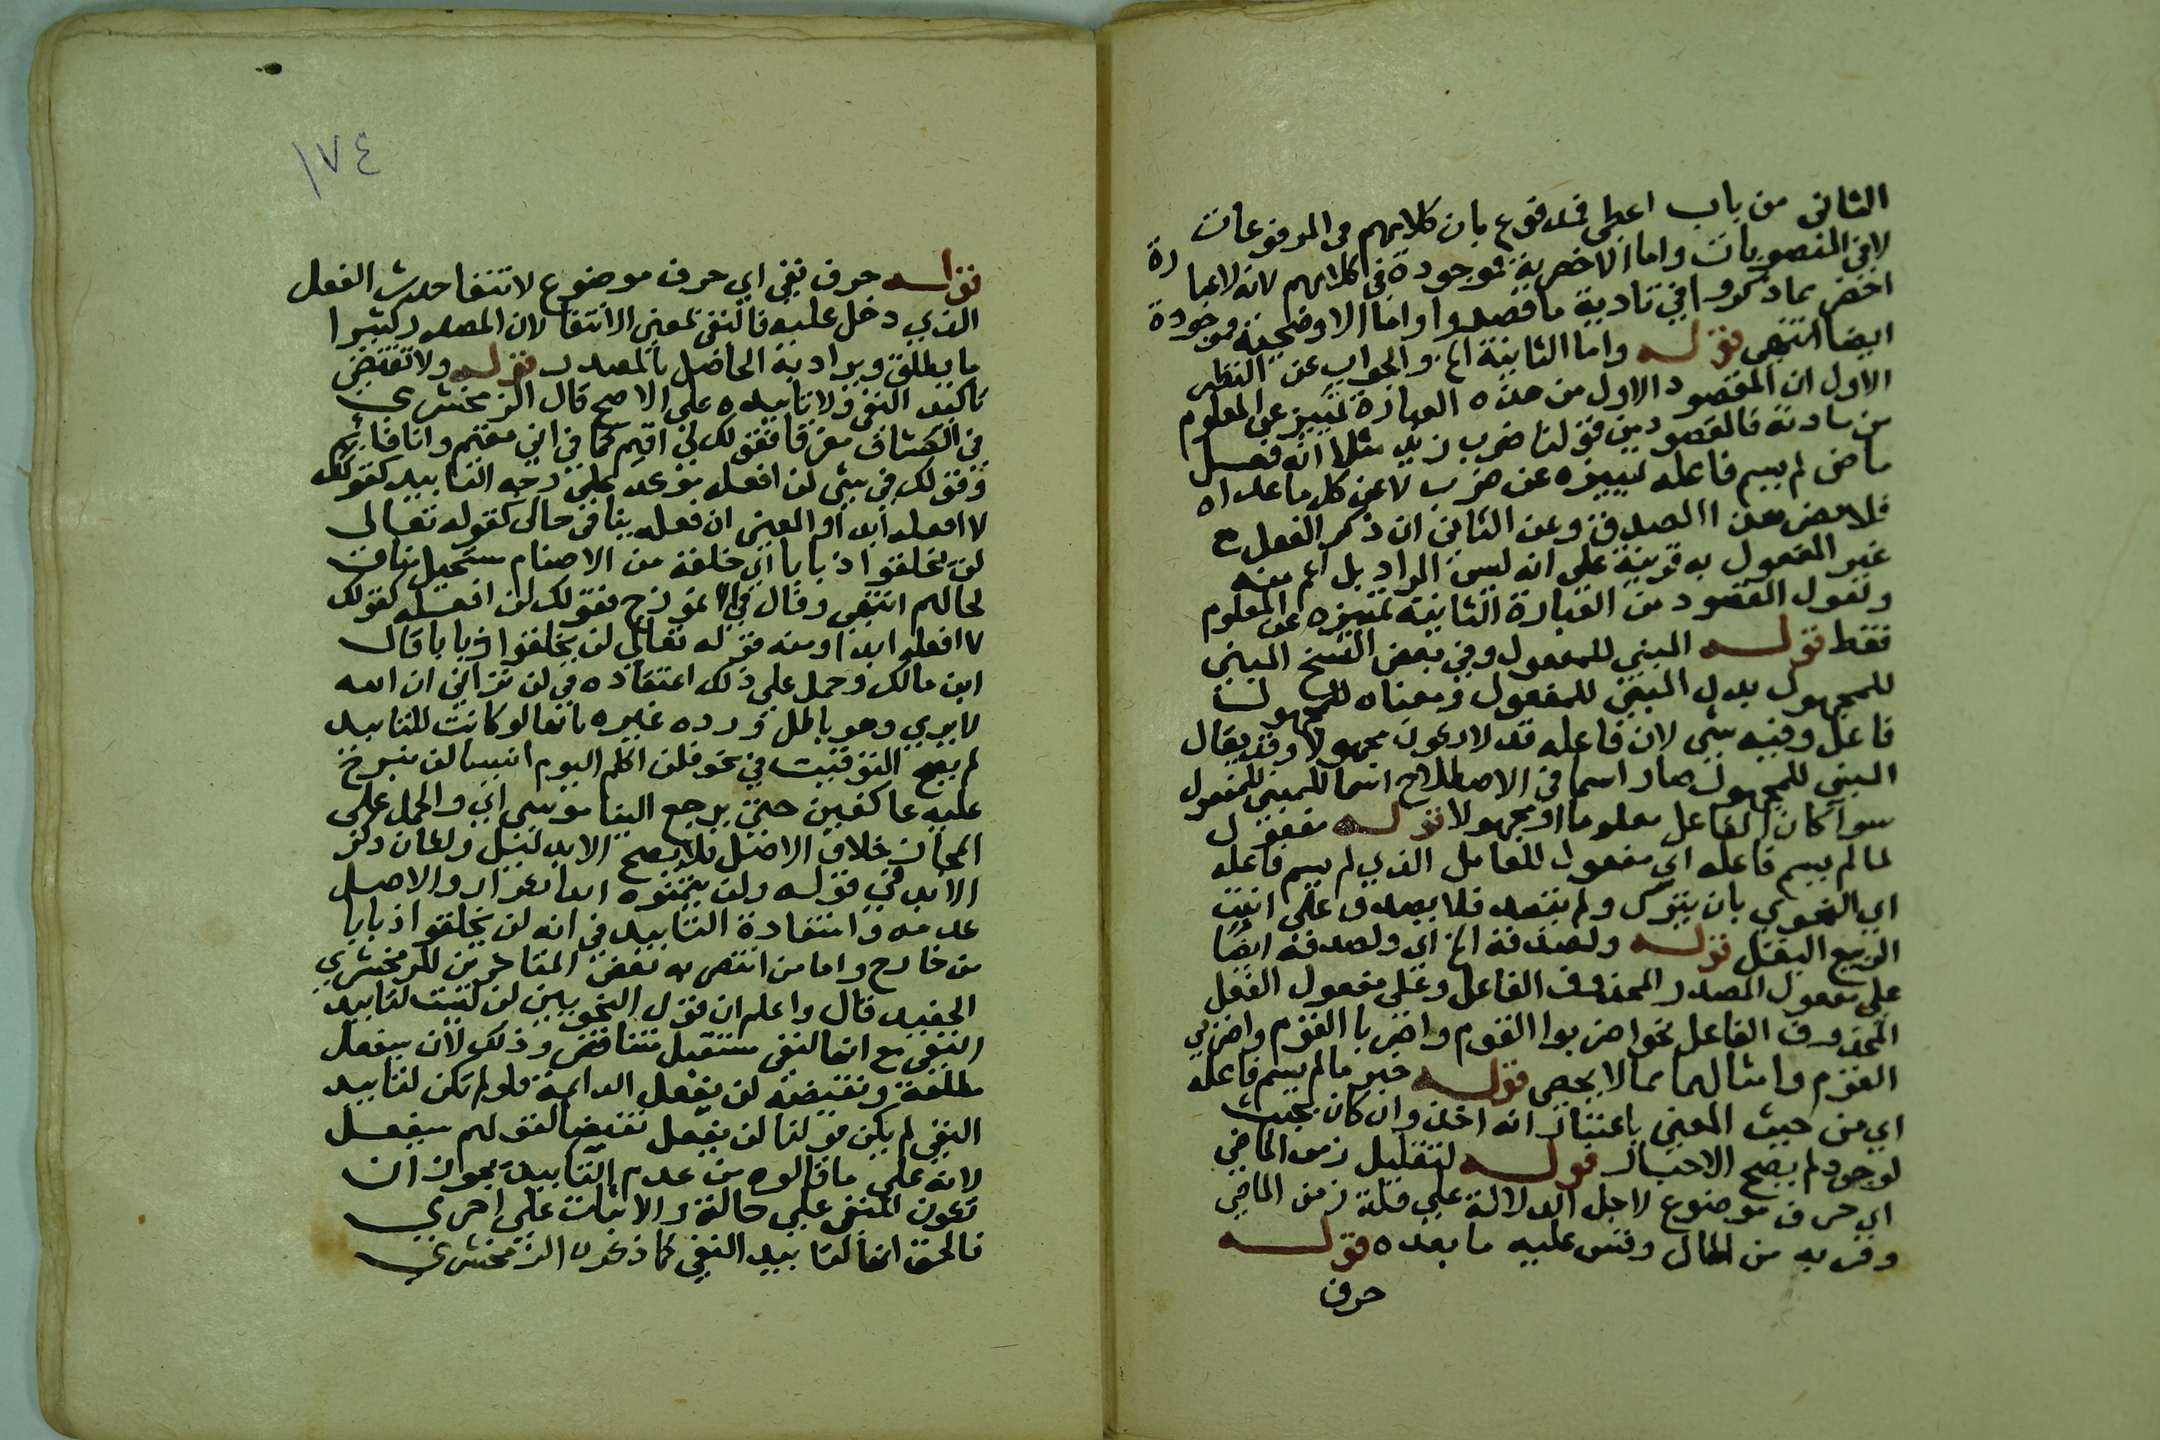 الثانى من باب اعطى فمدفوع بان كلامهم فى المرفوعات
لا فى المنصوبات واما الاخصرية فموجودة فى كلامهم لانه لا عبارة
اخصر بما ذكروا فى تادية ما قصدوا واما الاوضحية فموجودة
ايضا انتهى قوله واما الثانية الخ والجواب عن النظر
الاول ان المقصود الاول من هذه العبارة تمييز عن المعلوم
من مادته فالمقصود من قولنا ضرب زيد مثلا انه فعل
ماض لم يسم فاعله تمييزه عن ضرب لا عن كل ما عداه
فلا يضر هذا الصدق وعن الثانى ان ذكر الفعل مع
غير المفعول به قرينة على انه ليس المراد بل اعم منه
ونقول المقصود من العبارة الثانية تمييزه عن المعلوم
فقط قوله المبني للمفعول وفي بعض النسخ المبني
للمجهول بدل المبني للمفعول ومعناه للمجهول
فاعله وفيه شي لان فاعله قد لا يكون مجهولا وقد يقال
المبني للمجهول صار اسما فى الاصطلاح اسما للمبني للمفعول
سوا كان الفاعل معلوما او مجهولا قوله مفعول
لما لم يسم فاعله اي مفعول للعامل الذي لم يسم فاعله
اي النحوي بان يترك ولم يقصد فلا يصدق على انبت
الربيع البقل قوله ولصدقه الخ اي ولصدقه ايضا
على مفعول المصدر المحذوف الفاعل وعلى مفعول الفعل
المحذوف الفاعل نحو اضربوا القوم واضربا القوم واضربي
القوم وامثالهما مما لا يحصى قوله خبر ما لم يسم فاعله
اي من حيث المعني باعتبار انه اخذ وان كان بحيث
لو جود لم يصح الاخبار قوله لتقليل زمن الماضي
اي حرف موضوع لاجل الدلالة علي قلة زمن الماضي
وقربه من الحال وقس عليه ما بعده قوله
حرف
١٧٤
قوله حرف نفي اي حرف موضوع لانتفا حدث الفعل
الذي دخل عليه فالنفى بمعني الانتفا لان المصدر كثيرا
ما يطلق ويراد به الحاصل بالمصدر قوله ولا تقتضي
تاكيد النفى ولا تابيده على الاصح قال الزمخشري
في الكشاف مفرقا فقولك لن اقيم كما في اني مقيم وانا قايم
وقولك في شي لن افعله يوعد علي وجه التابيد كقولك
لا افعله ابدا والمعني ان فعله ينافي حالى كقوله تعالى
لن يخلقوا ذبابا اي خلقه من الاصنام مستحيل مناف
لحالهم انتهي وقال في الانموذج فقولك لن افعله كقولك
لا افعله ابدا ومنه قوله تعالي لن يخلقوا ذبابا قال
ابن مالك وحمل علي ذلك اعتقاده في لن تراني ان الله
لا يري وهو باطل ورده غيره بانها لو كانت للتابيد
لم يصح التوقيت في نحو فلن اكلم اليوم انسيا لن نبرح
عليه عاكفين حتى يرجع الينا موسى اني والحمل على
المجاز خلاف الاصل فلا يصح الا بدليل ولكان ذكر
الابد في قوله ولن يتمنوه ابدا تكرار والاصل
عدمه واستفادة التابيد في انه لن يخلقوا ذبابا
من خارج واما من انتصر له بعض المتاخرين للزمخشري
الحفيد قال واعلم ان قول النحويين لن ليست لتابيد
النفي مع انها لنفى مستقبل متناقض وذلك لان سيفعل
مطلقة ونقيضه لن يفعل الدايمة فلو لم تكن لتابيد
النفي لم يكن قولنا لن يفعل نقيضا لقولهم سيفعل
لانه على ما قالوه من عدم التابيد يجوز ان
تكون المنفى علي حالة والاثبات على اخري
فالحق انها لتابيد النفي كما ذكره الزمخشري